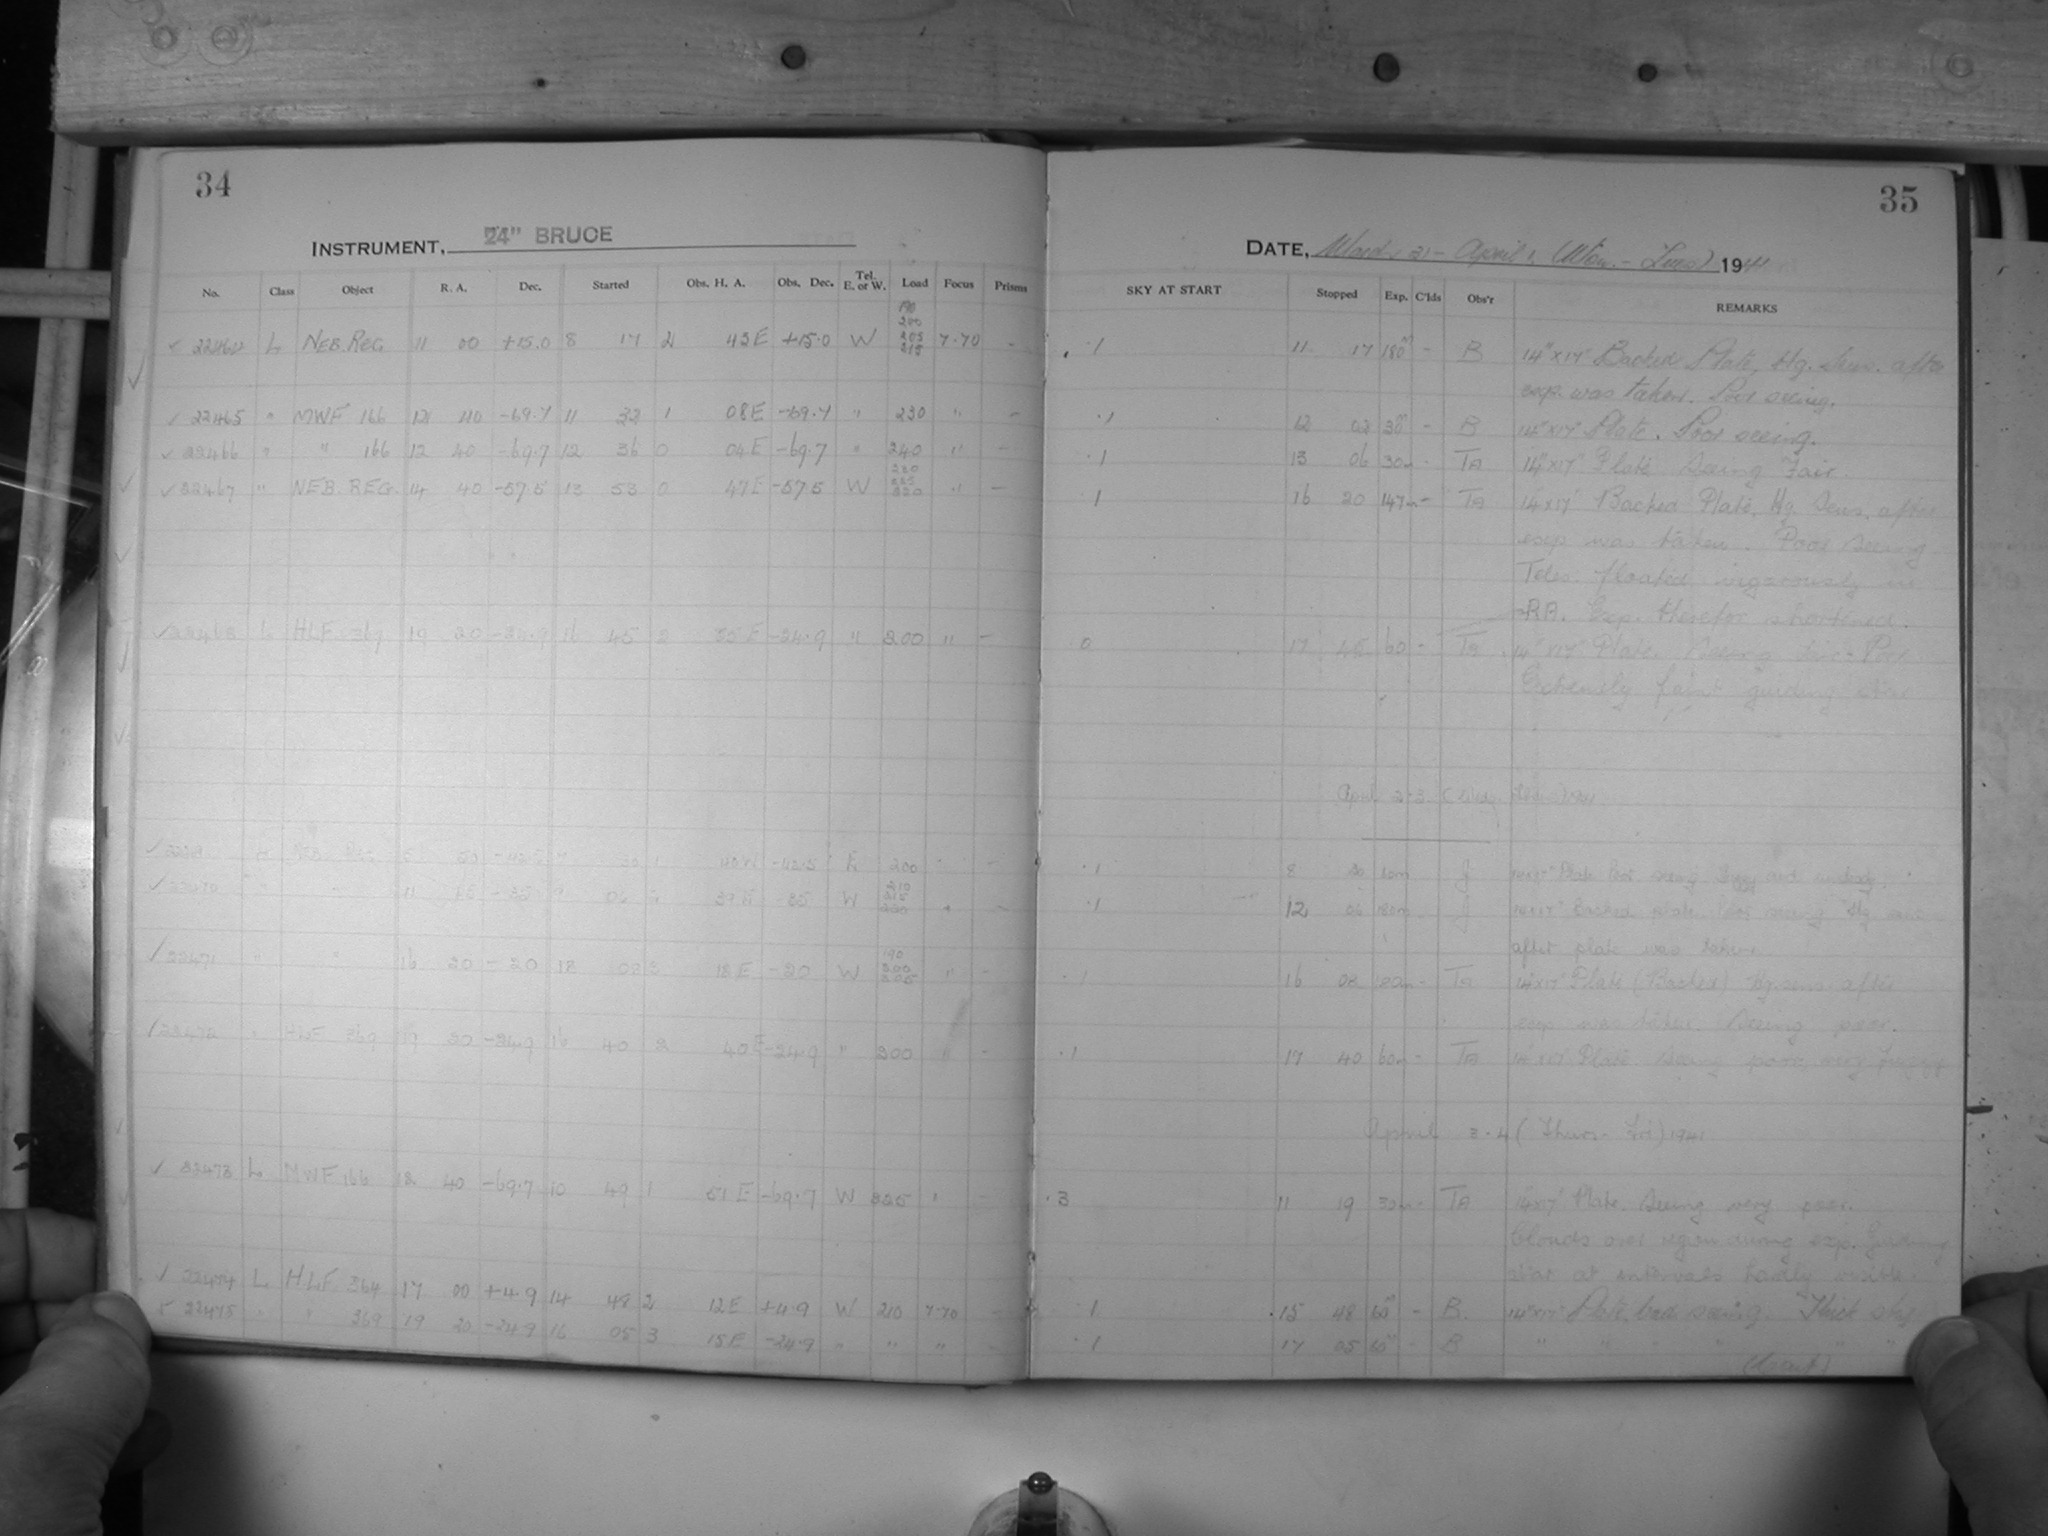 34
INSTRUMENT, 24" BRUCE
No. Class Object R. A. Dec. Started Obs. H. A. Obs. Dec. Tel. E. or W. Load Focus Prisms
22464 L NEB. REG. 11 00 +15.0 8 17 2 43E +15.0 W 190 200 205 215 7.70 -
22465 " MWF 166 12 40 -69.7 11 32 1 08E -69.7 " 230 " -
22466 " " 166 12 40 -69.7 12 36 0 04E -69.7 " 240 " -
22467 " NEB. REG. 14 40 -57.5 13 53 0 47E -57.5 W 220 " -
22468 L HLF 369 19 20 -24.9 16 45 2 35E -24.9 " 200 " -
50 -42.5 1 40W -42.5 200
22470 11 -35 39E -35 W 210 215
22471 " " 16 20 -20 13 08 3 18E -20 W 190 200 205 " -
22472 " HLF 369 19 20 -24.9 16 40 2 40E -24.9 " 200 " -
22473 L MWF 166 12 40 -69.7 10 49 1 51E -69.7 W 225 " -
22474 L HLF 364 17 00 +4.9 14 48 2 12E +4.9 W 210 7.70 -
22475 " " 369 19 20 -24.9 16 05 3 15E -24.9 " " "
35
DATE, March 31 - April 1, (Mon. - Tues) 1941
SKY AT START Stopped Exp. C'lds Obs'r REMARKS
.1 11 17 180m - B 14"x17" Backed Plate, Hg. Sens. after
exp. was taken. Poor seeing.
.1 12 02 30m - B 14"x17" Plate. Poor seeing.
.1 13 06 30m - TA 14"x17" Plate Seeing Fair.
.1 16 20 147m - TA 14"x17" Backed Plate, Hg. Sens. after
exp was taken. Poor Seeing
Teles. floated vigorously in
RA. Exp. therefor shortened.
0 17 45 60 - TA 14"x17" Plate. Seeing Poor
Extremely faint guiding star
April 2-3 1941
.1 8 30 J 14x17" Plate Poor seeing and unsteady.
.1 12 06 180m J 14x17" Backed plate. Poor seeing Hg sens
after plate was taken
.1 16 08 TA 14"x17" Plate (Backed) Hg. sens. after
exp was taken. Seeing poor.
.1 17 40 60m - TA 14"x17" Plate Seeing poor, very fuzzy
April 3-4 (Thurs - Fri) 1941
.3 11 19 30m - TA 14"x17" Plate. Seeing very poor.
Clouds over region during exp. Guiding
star at intervals hardly visible.
.1 15 48 60m - B. 14"x17" Plate, bad seeing. Thick sky
.1 17 05 60m - B " " " " " "